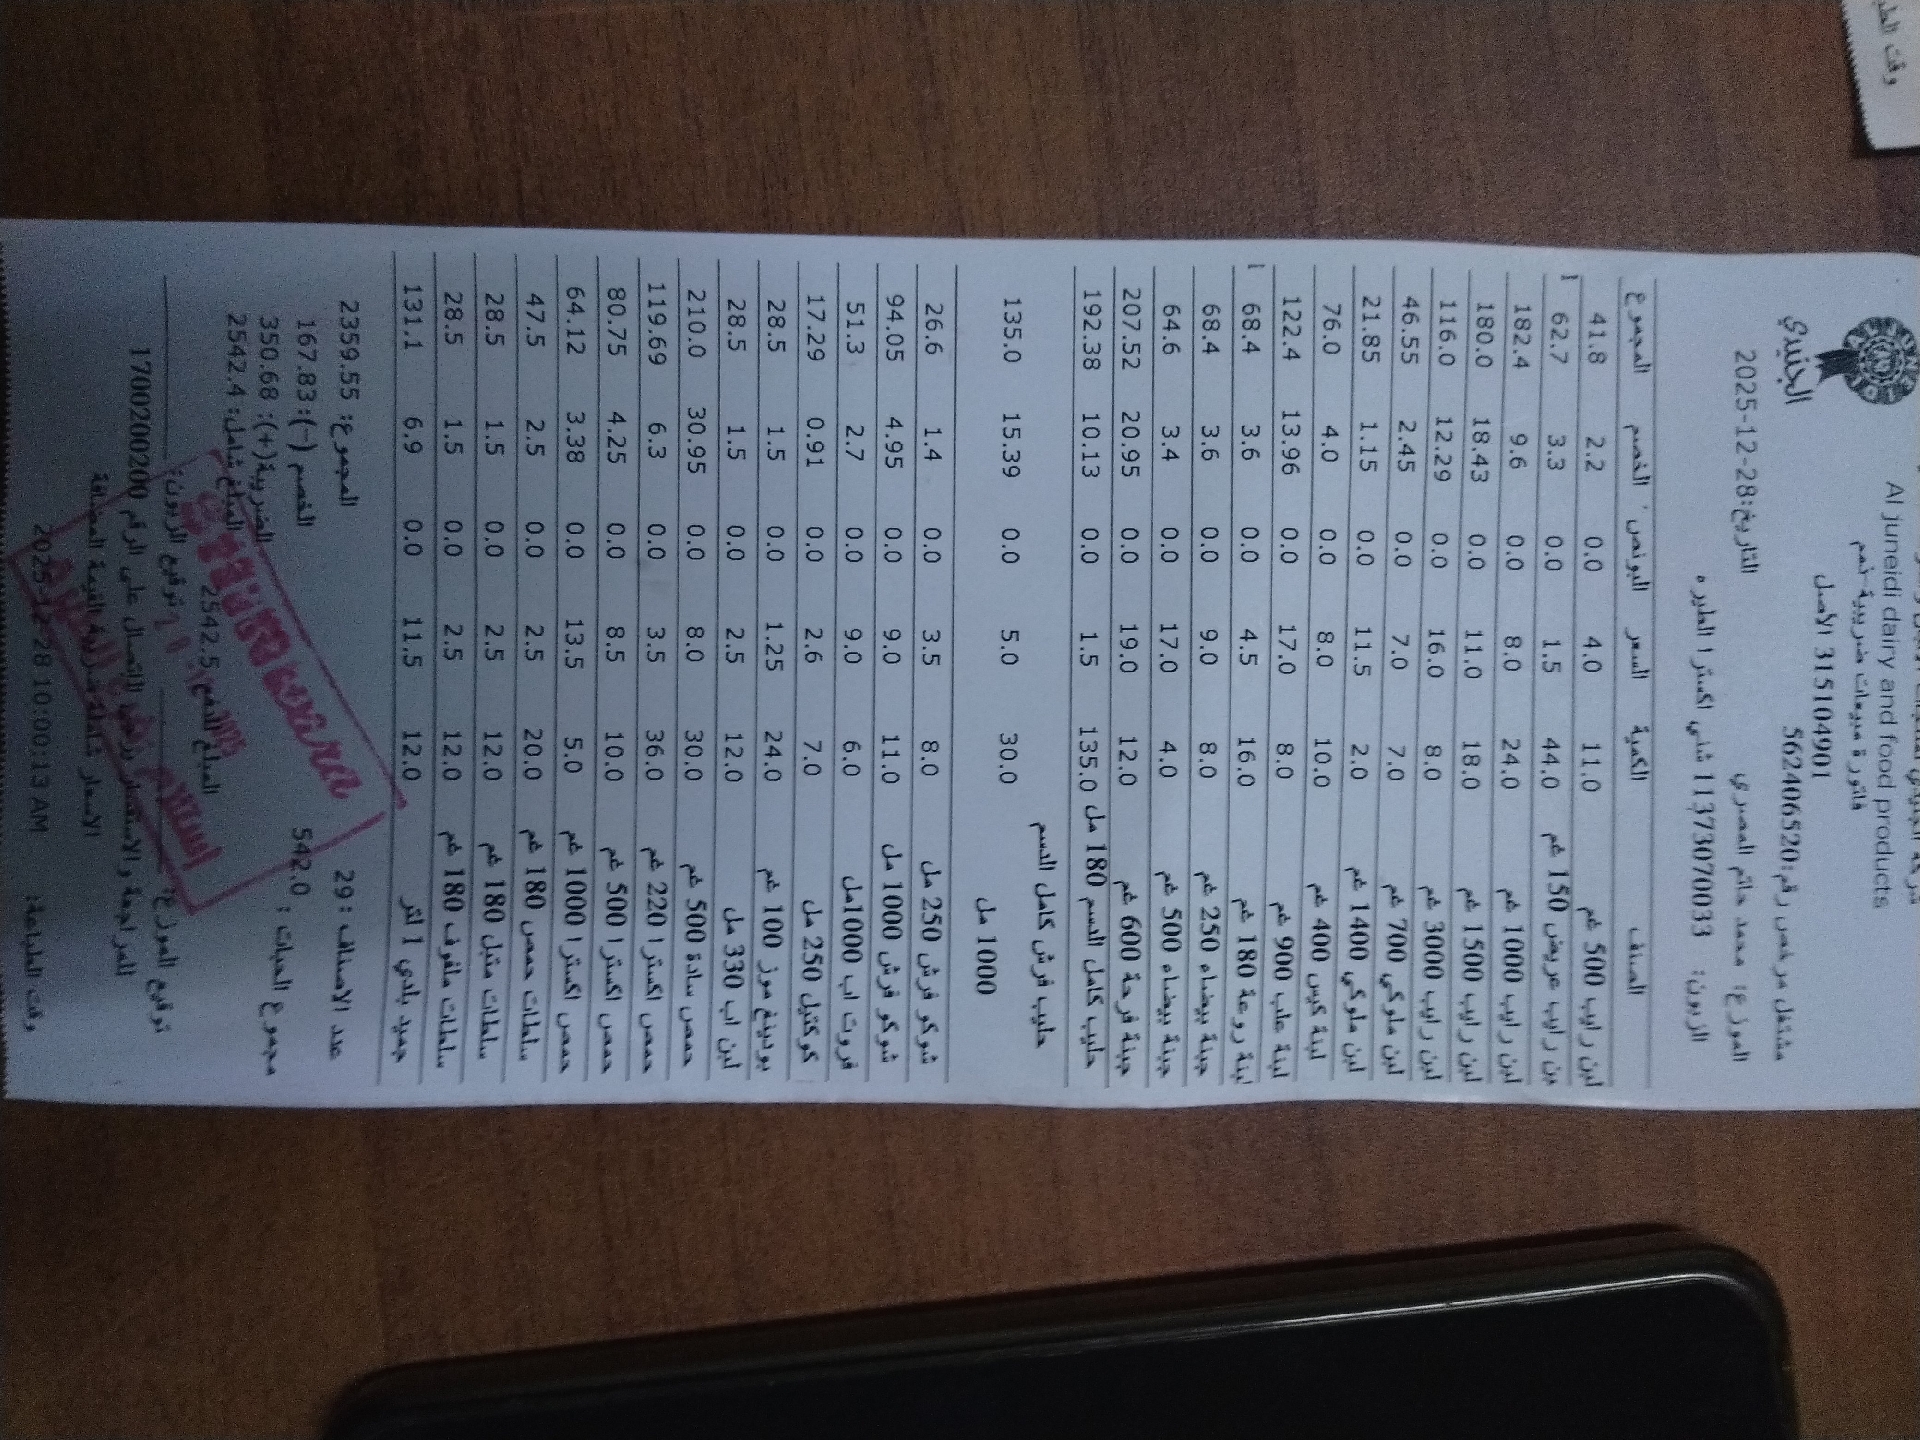 Al juneidi dary and food products
فاتورة مبيعات ضريبية-نعم
315104901 الأصل
الجنيدي
مشتغل مرخص رقم:562406520
الموزع: محمد حاتم المصري التاريخ:28-12-2025
الزبون: 11373070033 شني اكسترا الطيره
الصنف الكمية السعر البونص الخصم المجموع
لبن رايب 500 غم 11.0 4.0 0.0 2.2 41.8
بن رايب عريض 150 غم 44.0 1.5 0.0 3.3 62.7
لبن رايب 1000 غم 24.0 8.0 0.0 9.6 182.4
لبن رايب 1500 غم 18.0 11.0 0.0 18.43 180.0
لبن رايب 3000 غم 8.0 16.0 0.0 12.29 116.0
لبن ملوكي 700 غم 7.0 7.0 0.0 2.45 46.55
لبن ملوكي 1400 غم 2.0 11.5 0.0 1.15 21.85
لبنة كيس 400 غم 10.0 8.0 0.0 4.0 76.0
لبنة علب 900 غم 8.0 17.0 0.0 13.96 122.4
لبنة روعة 180 غم 16.0 4.5 0.0 3.6 68.4
جبنة بيضاء 250 غم 8.0 9.0 0.0 3.6 68.4
جبنة بيضاء 500 غم 4.0 17.0 0.0 3.4 64.6
جبنة فرحة 600 غم 12.0 19.0 0.0 20.95 207.52
حليب كامل الدسم 180 مل 135.0 1.5 0.0 10.13 192.38
حليب فرش كامل الدسم
1000 مل 30.0 5.0 0.0 15.39 135.0
شوكو فرش 250 مل 8.0 3.5 0.0 1.4 26.6
شوكو فرش 1000 مل 11.0 9.0 0.0 4.95 94.05
فروت اب 1000مل 6.0 9.0 0.0 2.7 51.3
كوكتيل 250 مل 7.0 2.6 0.0 0.91 17.29
بودينغ موز 100 غم 24.0 1.25 0.0 1.5 28.5
لبن اب 330 مل 12.0 2.5 0.0 1.5 28.5
حمص سادة 500 غم 30.0 8.0 0.0 30.95 210.0
حمص اكسترا 220 غم 36.0 3.5 0.0 6.3 119.69
حمص اكسترا 500 غم 10.0 8.5 0.0 4.25 80.75
حمص اكسترا 1000 غم 5.0 13.5 0.0 3.38 64.12
سلطات حمص 180 غم 20.0 2.5 0.0 2.5 47.5
سلطات متبل 180 غم 12.0 2.5 0.0 1.5 28.5
سلطات ملفوف 180 غم 12.0 2.5 0.0 1.5 28.5
جميد بلدي 1 لتر 12.0 11.5 0.0 6.9 131.1
عدد الاصناف : 29 المجموع: 2359.55
مجموع الحبات : 542.0 الخصم (-): 167.83
الضريبة(+): 350.68
المبلغ شامل: 2542.4
المبلغ للدفع: 2542.5
توقيع الموزع: توقيع الزبون:
للمراجعة والاستفسار يرجى الاتصال على الرقم 1700200200
الاسعار شاملة ضريبة القيمة المضافة
وقت الطباعة: 2025-12-28 10:00:13 AM
استلام
وقت الطب